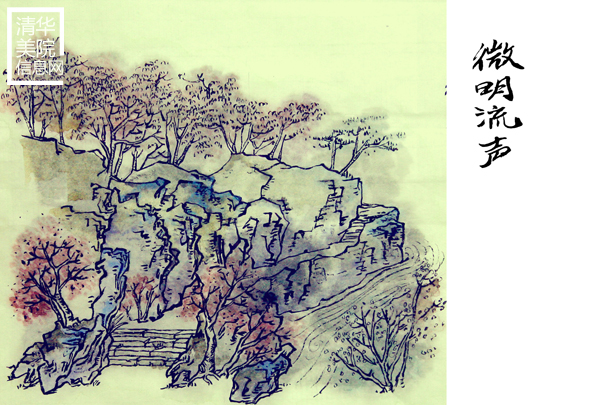 清华
美院
信息网
微明流声